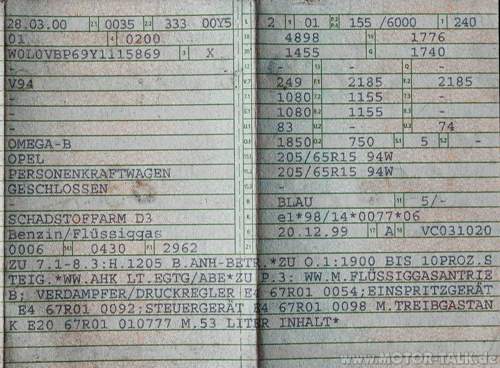 28.03.00 2.1 0035 2.2 333 00Y5
01 4 0200
W0L0VBP69Y1115869 3 X
-
V94
-
-
-
OMEGA-B
OPEL
PERSONENKRAFTWAGEN
GESCHLOSSEN
-
SCHADSTOFFARM D3
Benzin/Flüssiggas
0006 0430 2962
L 2 9 01 155 /6000 T 240
18 4898 19 1776
20 1455 G 1740
12 - 13 - Q -
V.7 249 F.1 2185 F.2 2185
7.1 1080 7.2 1155 7.3 -
8.1 1080 8.2 1155 8.3 -
U.1 83 U.2 - U.3 74
O.1 1850 O.2 750 S.1 5 S.2 -
205/65R15 94W
205/65R15 94W
-
R BLAU 11 5/-
K e1*98/14*0077*06
6 20.12.99 17 A 16 VC031020
21
ZU 7.1-8.3:H.1205 B.ANH-BETR.*ZU O.1:1900 BIS 10PROZ.S
TEIG.*WW.AHK LT.EGTG/ABE*ZU P.3: WW.M.FLÜSSIGGASANTRIE
B; VERDAMPFER/DRUCKREGLER E4 67R01 0054;EINSPRITZGERÄT
E4 67R01 0092;STEUERGERÄT E4 67R01 0098 M.TREIBGASTAN
K E20 67R01 010777 M.53 LITER INHALT*
www.MOTOR-TALK.de